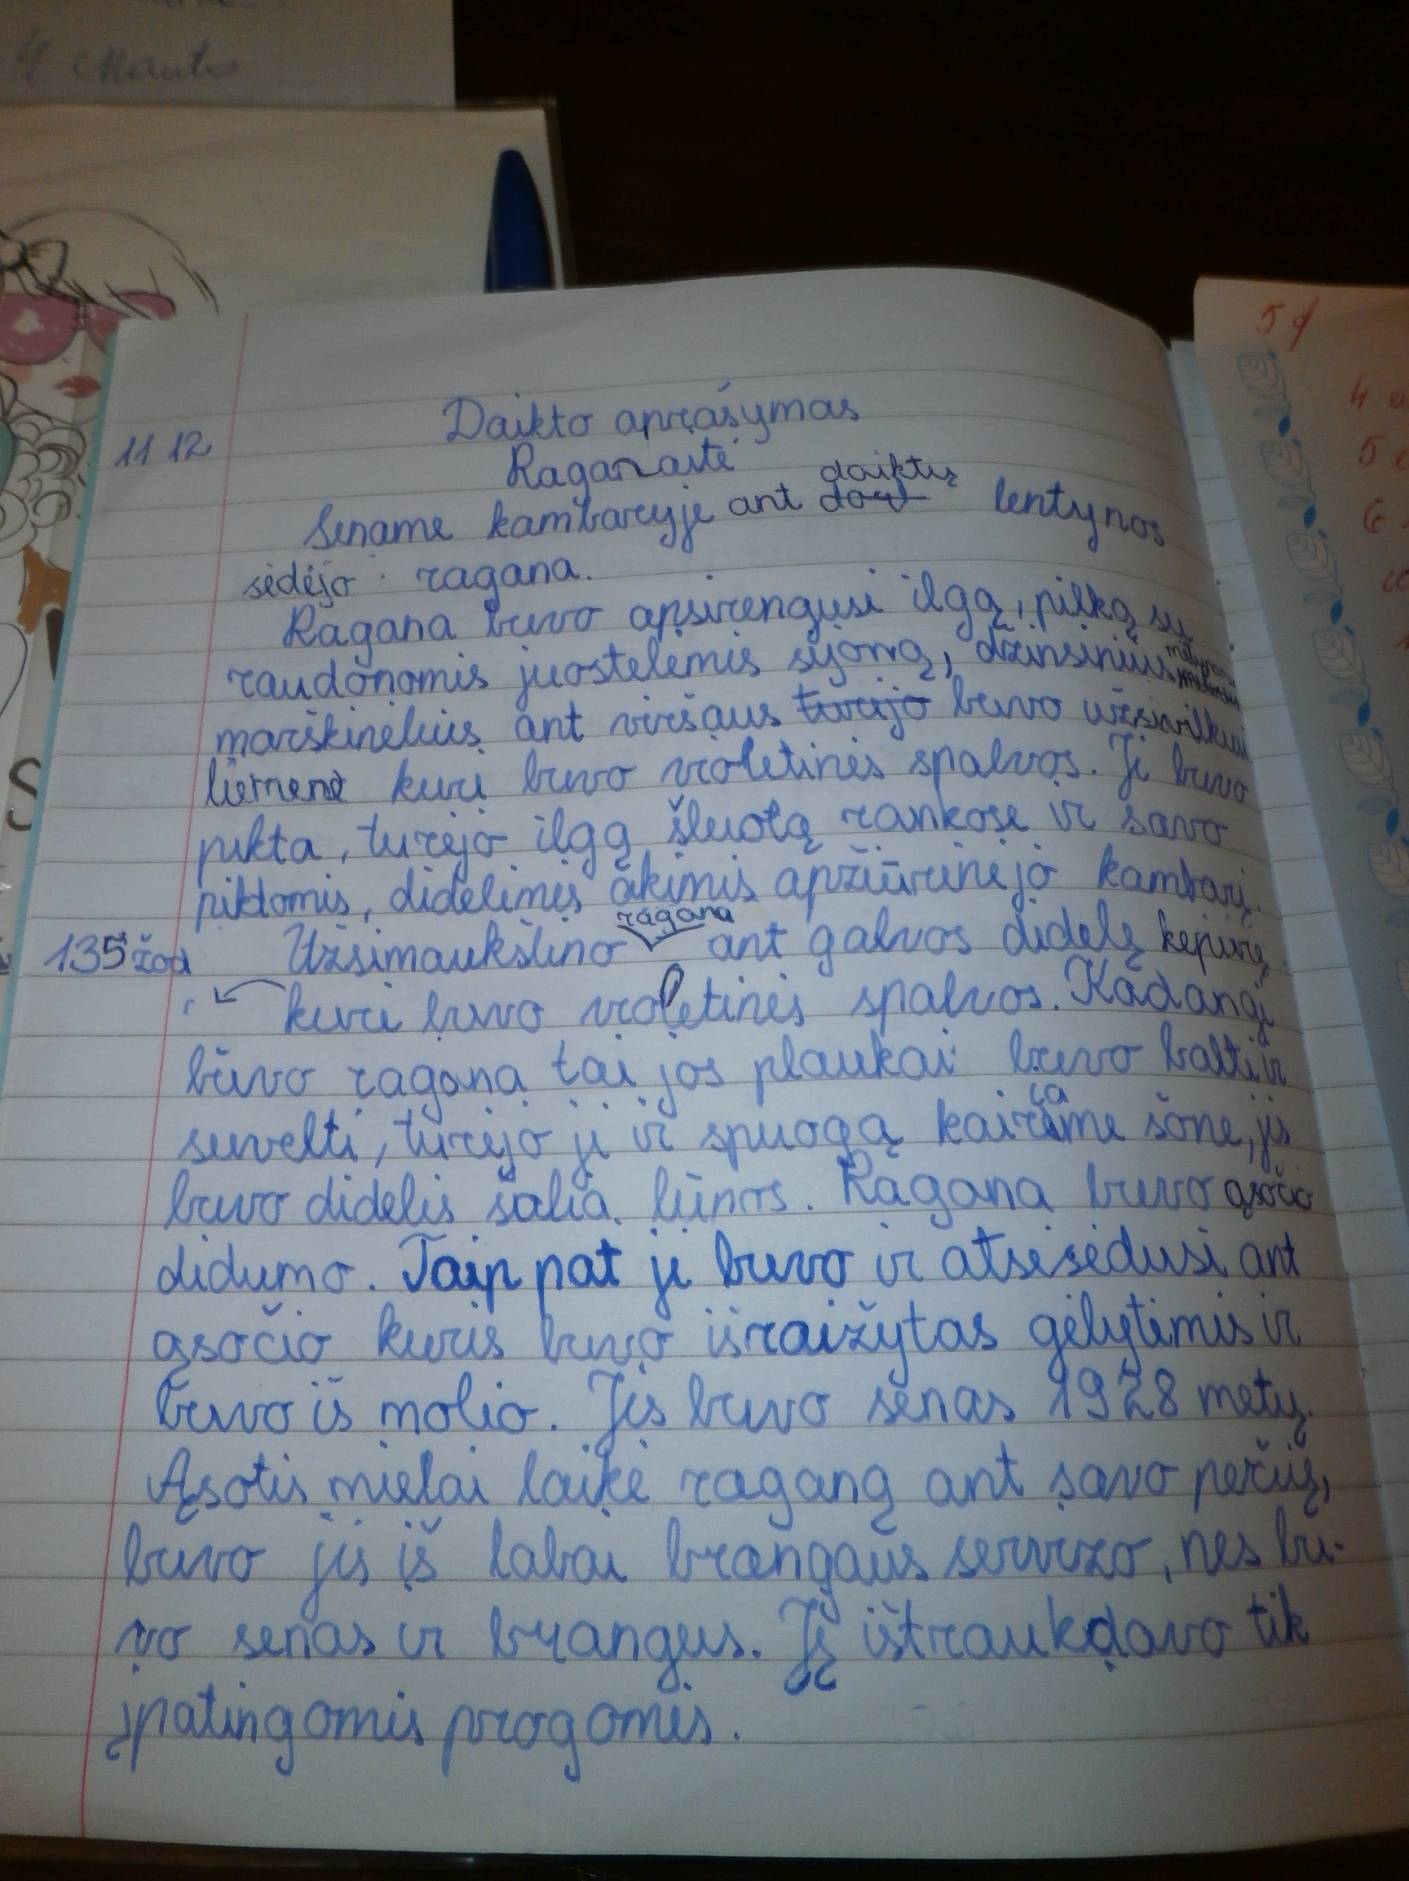 11 12
Daikto aprašymas
Raganaitė
Sename kambaryje ant daiktų lentynos
sėdėjo ragana.
Ragana buvo apsirengusi ilgą, pilką su
raudonomis juostelėmis sijoną, džinsinius
marškinėlius ant viršaus turėjo buvo užsivilkusi
liemenė kuri buvo violetinės spalvos. Ji buvo
pikta, turėjo ilgą šluotą rankose ir savo
piktomis, didelimis akimis apžiūrinėjo kambarį.
135 žod
Užsimaukšlino ragana ant galvos didelę kepurę
kuri buvo violetinės spalvos. Kadangi
buvo ragana tai jos plaukai buvo balti ir
suvelti, turėjo ji ir spuogą kairiame šone, jis
buvo didelis šalia lūpos. Ragana buvo ąsočio
didumo. Taip pat ji buvo ir atsisėdusi ant
ąsočio kuris buvo išraižytas gėlytėmis ir
buvo iš molio. Jis buvo senas 1928 metų.
Ąsotis mielai laikė raganą ant savo pečių,
buvo jis iš labai brangaus servizo, nes bu-
vo senas ir brangus. Jį ištraukdavo tik
ypatingomis progomis.
5 d
4
5
6